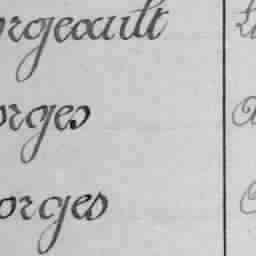 orgeault
orges
orges